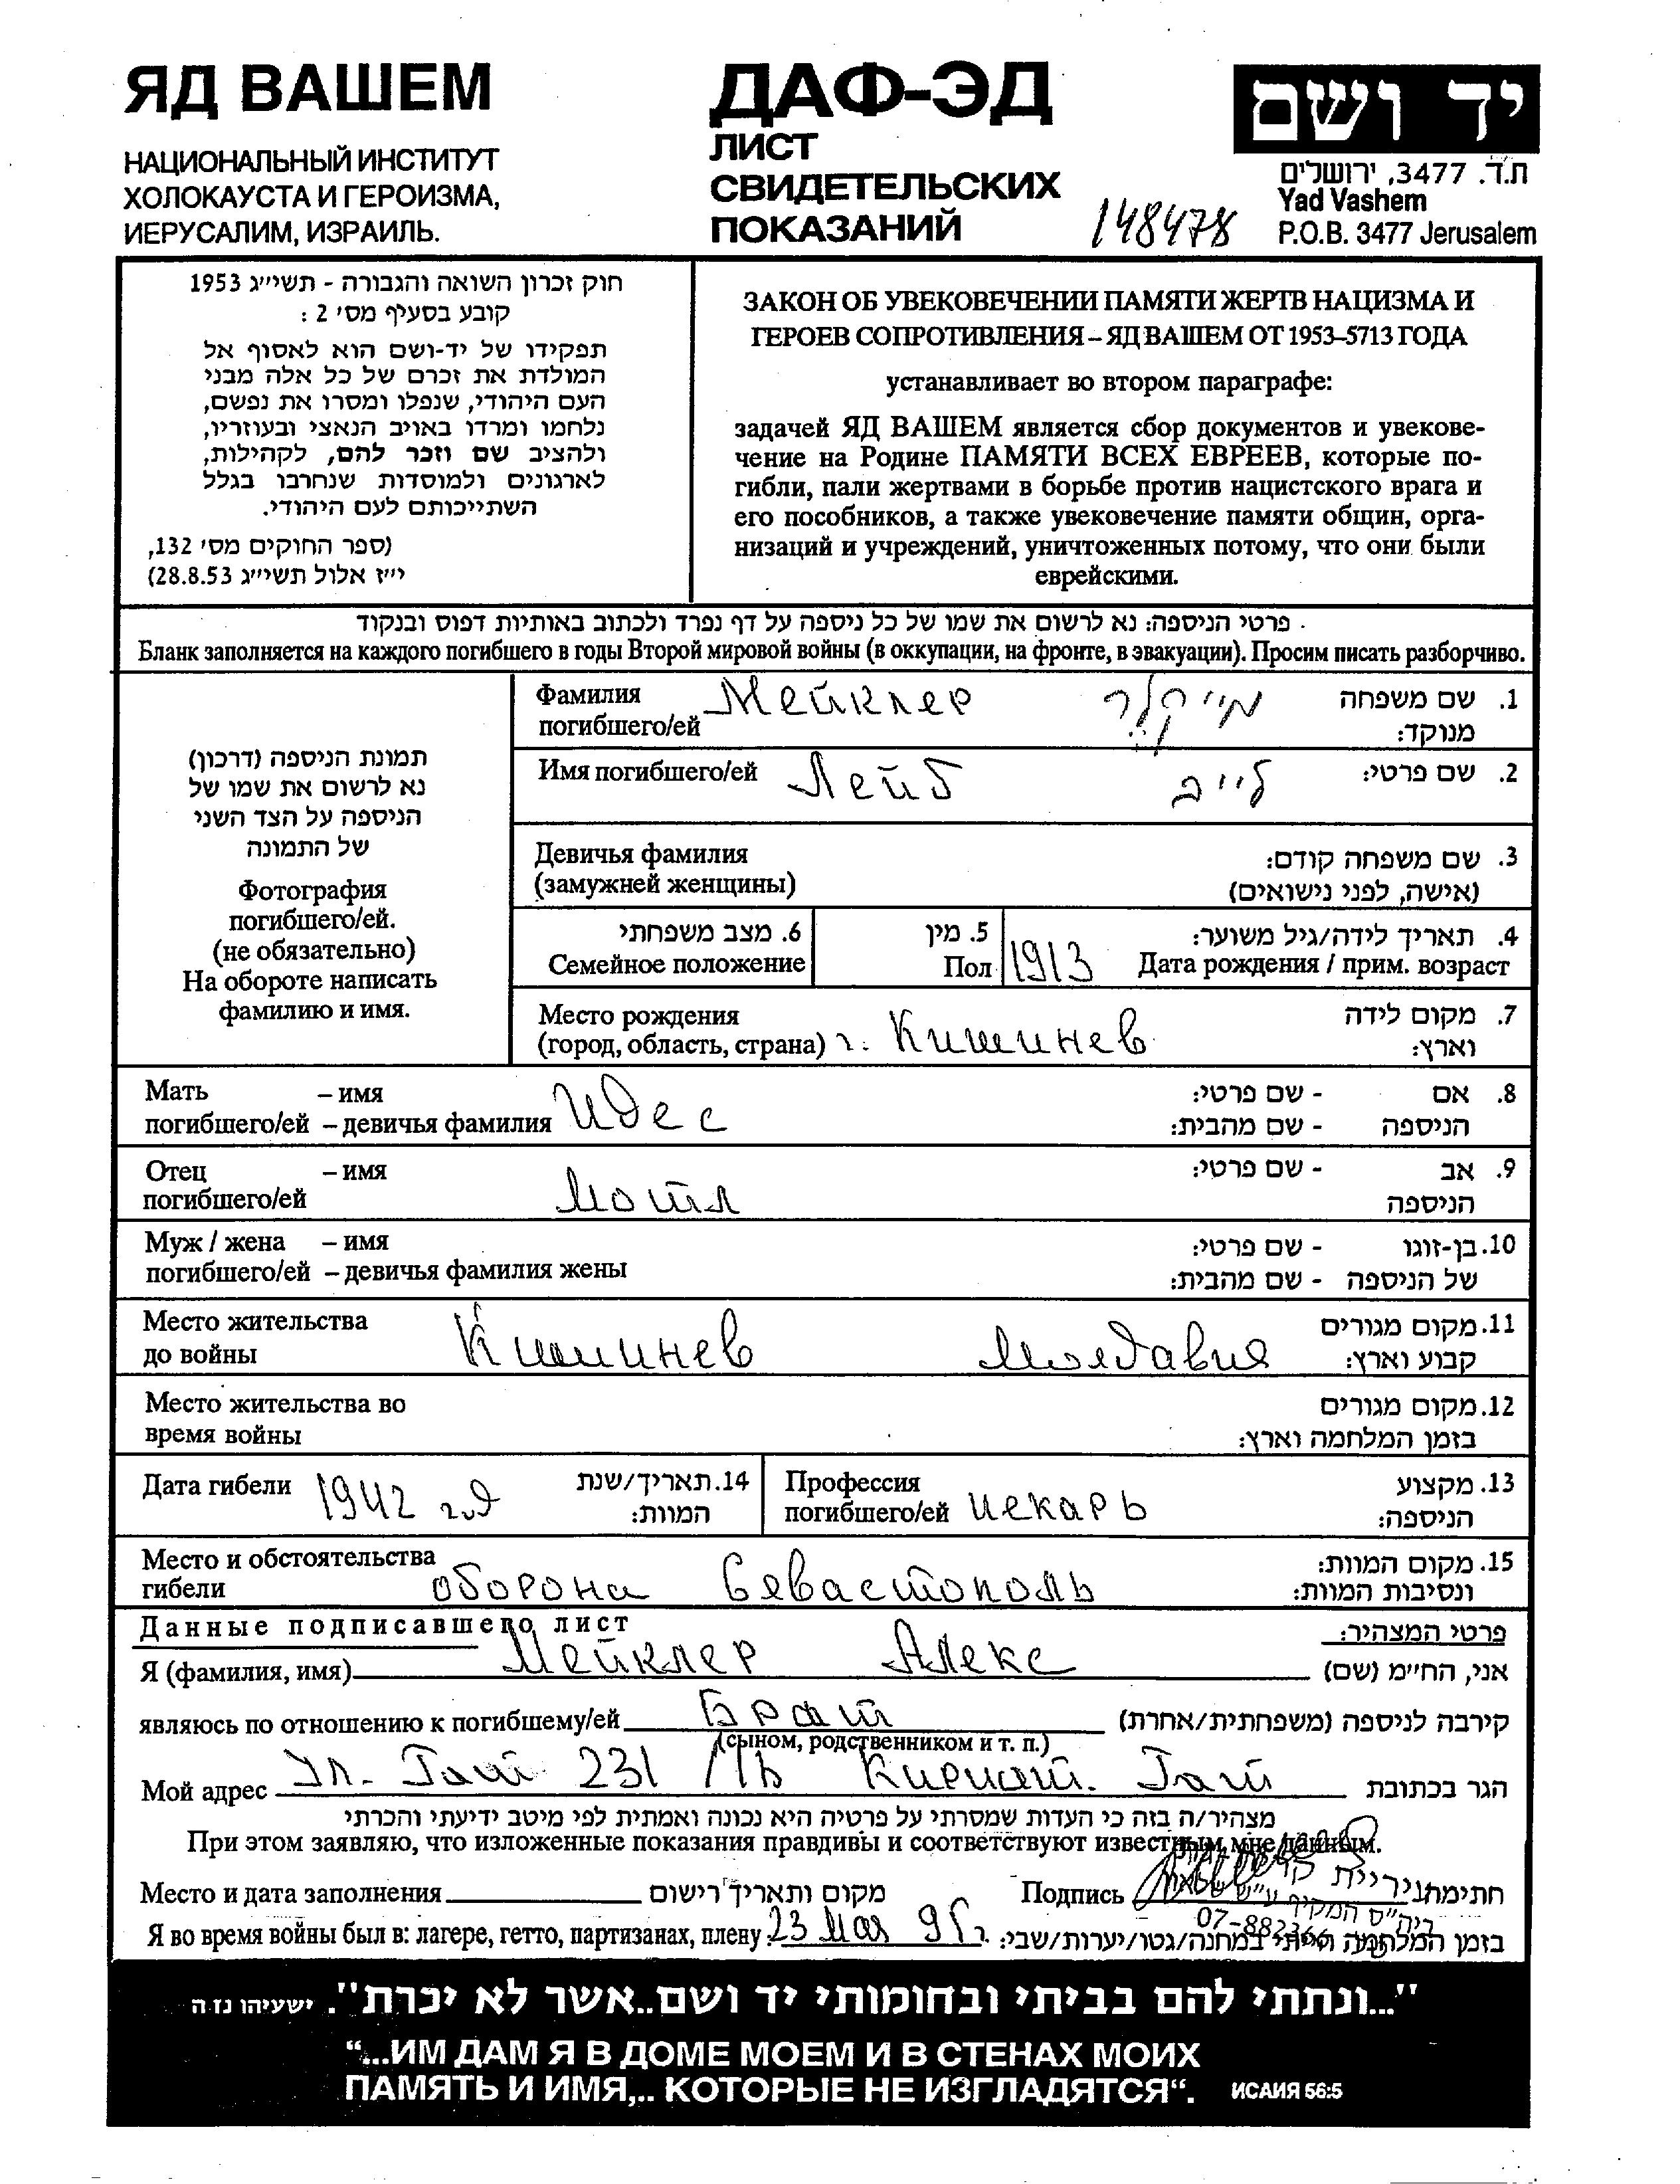 ЯД ВАШЕМ
НАЦИОНАЛЬНЫЙ ИНСТИТУТ
ХОЛОКАУСТА И ГЕРОИЗМА,
ИЕРУСАЛИМ, ИЗРАИЛЬ.
ДАФ-ЭД
ЛИСТ
СВИДЕТЕЛЬСКИХ
ПОКАЗАНИЙ
148478
יד ושם
ת.ד. 3477, ירושלים
Yad Vashem
P.O.B. 3477 Jerusalem
חוק זכרון השואה והגבורה - תשי״ג 1953
קובע בסעיף מס׳ 2 :
תפקידו של יד-ושם הוא לאסוף אל
המולדת את זכרם של כל אלה מבני
העם היהודי, שנפלו ומסרו את נפשם,
נלחמו ומרדו באויב הנאצי ובעוזריו,
ולהציב שם וזכר להם, לקהילות,
לארגונים ולמוסדות שנחרבו בגלל
השתייכותם לעם היהודי.
(ספר החוקים מס׳ 132,
י״ז אלול תשי״ג 28.8.53)
ЗАКОН ОБ УВЕКОВЕЧЕНИИ ПАМЯТИ ЖЕРТВ НАЦИЗМА И
ГЕРОЕВ СОПРОТИВЛЕНИЯ – ЯД ВАШЕМ ОТ 1953–5713 ГОДА
устанавливает во втором параграфе:
задачей ЯД ВАШЕМ является сбор документов и увекове-
чение на Родине ПАМЯТИ ВСЕХ ЕВРЕЕВ, которые по-
гибли, пали жертвами в борьбе против нацистского врага и
его пособников, а также увековечение памяти общин, орга-
низаций и учреждений, уничтоженных потому, что они были
еврейскими.
פרטי הניספה: נא לרשום את שמו של כל ניספה על דף נפרד ולכתוב באותיות דפוס ובנקוד
Бланк заполняется на каждого погибшего в годы Второй мировой войны (в оккупации, на фронте, в эвакуации). Просим писать разборчиво.
תמונת הניספה (דרכון)
נא לרשום את שמו של
הניספה על הצד השני
של התמונה
Фотография
погибшего/ей.
(не обязательно)
На обороте написать
фамилию и имя.
Фамилия Мейклер מייקלר 1. שם משפחה
погибшего/ей מנוקד:
Имя погибшего/ей Лейб לייב 2. שם פרטי:
Девичья фамилия 3. שם משפחה קודם:
(замужней женщины) (אישה, לפני נישואים)
6. מצב משפחתי 5. מין 4. תאריך לידה/גיל משוער:
Семейное положение Пол 1913 Дата рождения / прим. возраст
Место рождения 7. מקום לידה
(город, область, страна) г. Кишинев וארץ:
Мать – имя 8. אם - שם פרטי:
погибшего/ей – девичья фамилия Идес הניספה - שם מהבית:
Отец – имя 9. אב - שם פרטי:
погибшего/ей Мотл הניספה
Муж / жена – имя 10. בן-זוגו - שם פרטי:
погибшего/ей – девичья фамилия жены של הניספה - שם מהבית:
Место жительства 11. מקום מגורים
до войны Кишинев Молдавия קבוע וארץ:
Место жительства во 12. מקום מגורים
время войны בזמן המלחמה וארץ:
Дата гибели 1942 год 14. תאריך/שנת המוות:
Профессия 13. מקצוע
погибшего/ей пекарь הניספה:
Место и обстоятельства 15. מקום המוות:
гибели оборона Севастополь ונסיבות המוות:
Данные подписавшего лист פרטי המצהיר:
Я (фамилия, имя) Мейклер Алекс אני, החי״מ (שם)
являюсь по отношению к погибшему/ей Брат קירבה לניספה (משפחתית/אחרת)
(сыном, родственником и т. п.)
Мой адрес Ул. Гат 231 /1ь Кириат. Гат הגר בכתובת
מצהיר/ה בזה כי העדות שמסרתי על פרטיה היא נכונה ואמתית לפי מיטב ידיעתי והכרתי
При этом заявляю, что изложенные показания правдивы и соответствуют известным мне данным.
Место и дата заполнения מקום ותאריך רישום Подпись חתימת
07-882366
Я во время войны был в: лагере, гетто, партизанах, плену 23 Мая 95г. בזמן המלחמה הייתי במחנה/גטו/יערות/שבי:
״...ונתתי להם בביתי ובחומותי יד ושם..אשר לא יכרת״. ישעיהו נז ה
“...ИМ ДАМ Я В ДОМЕ МОЕМ И В СТЕНАХ МОИХ
ПАМЯТЬ И ИМЯ,.. КОТОРЫЕ НЕ ИЗГЛАДЯТСЯ“. ИСАИЯ 56:5